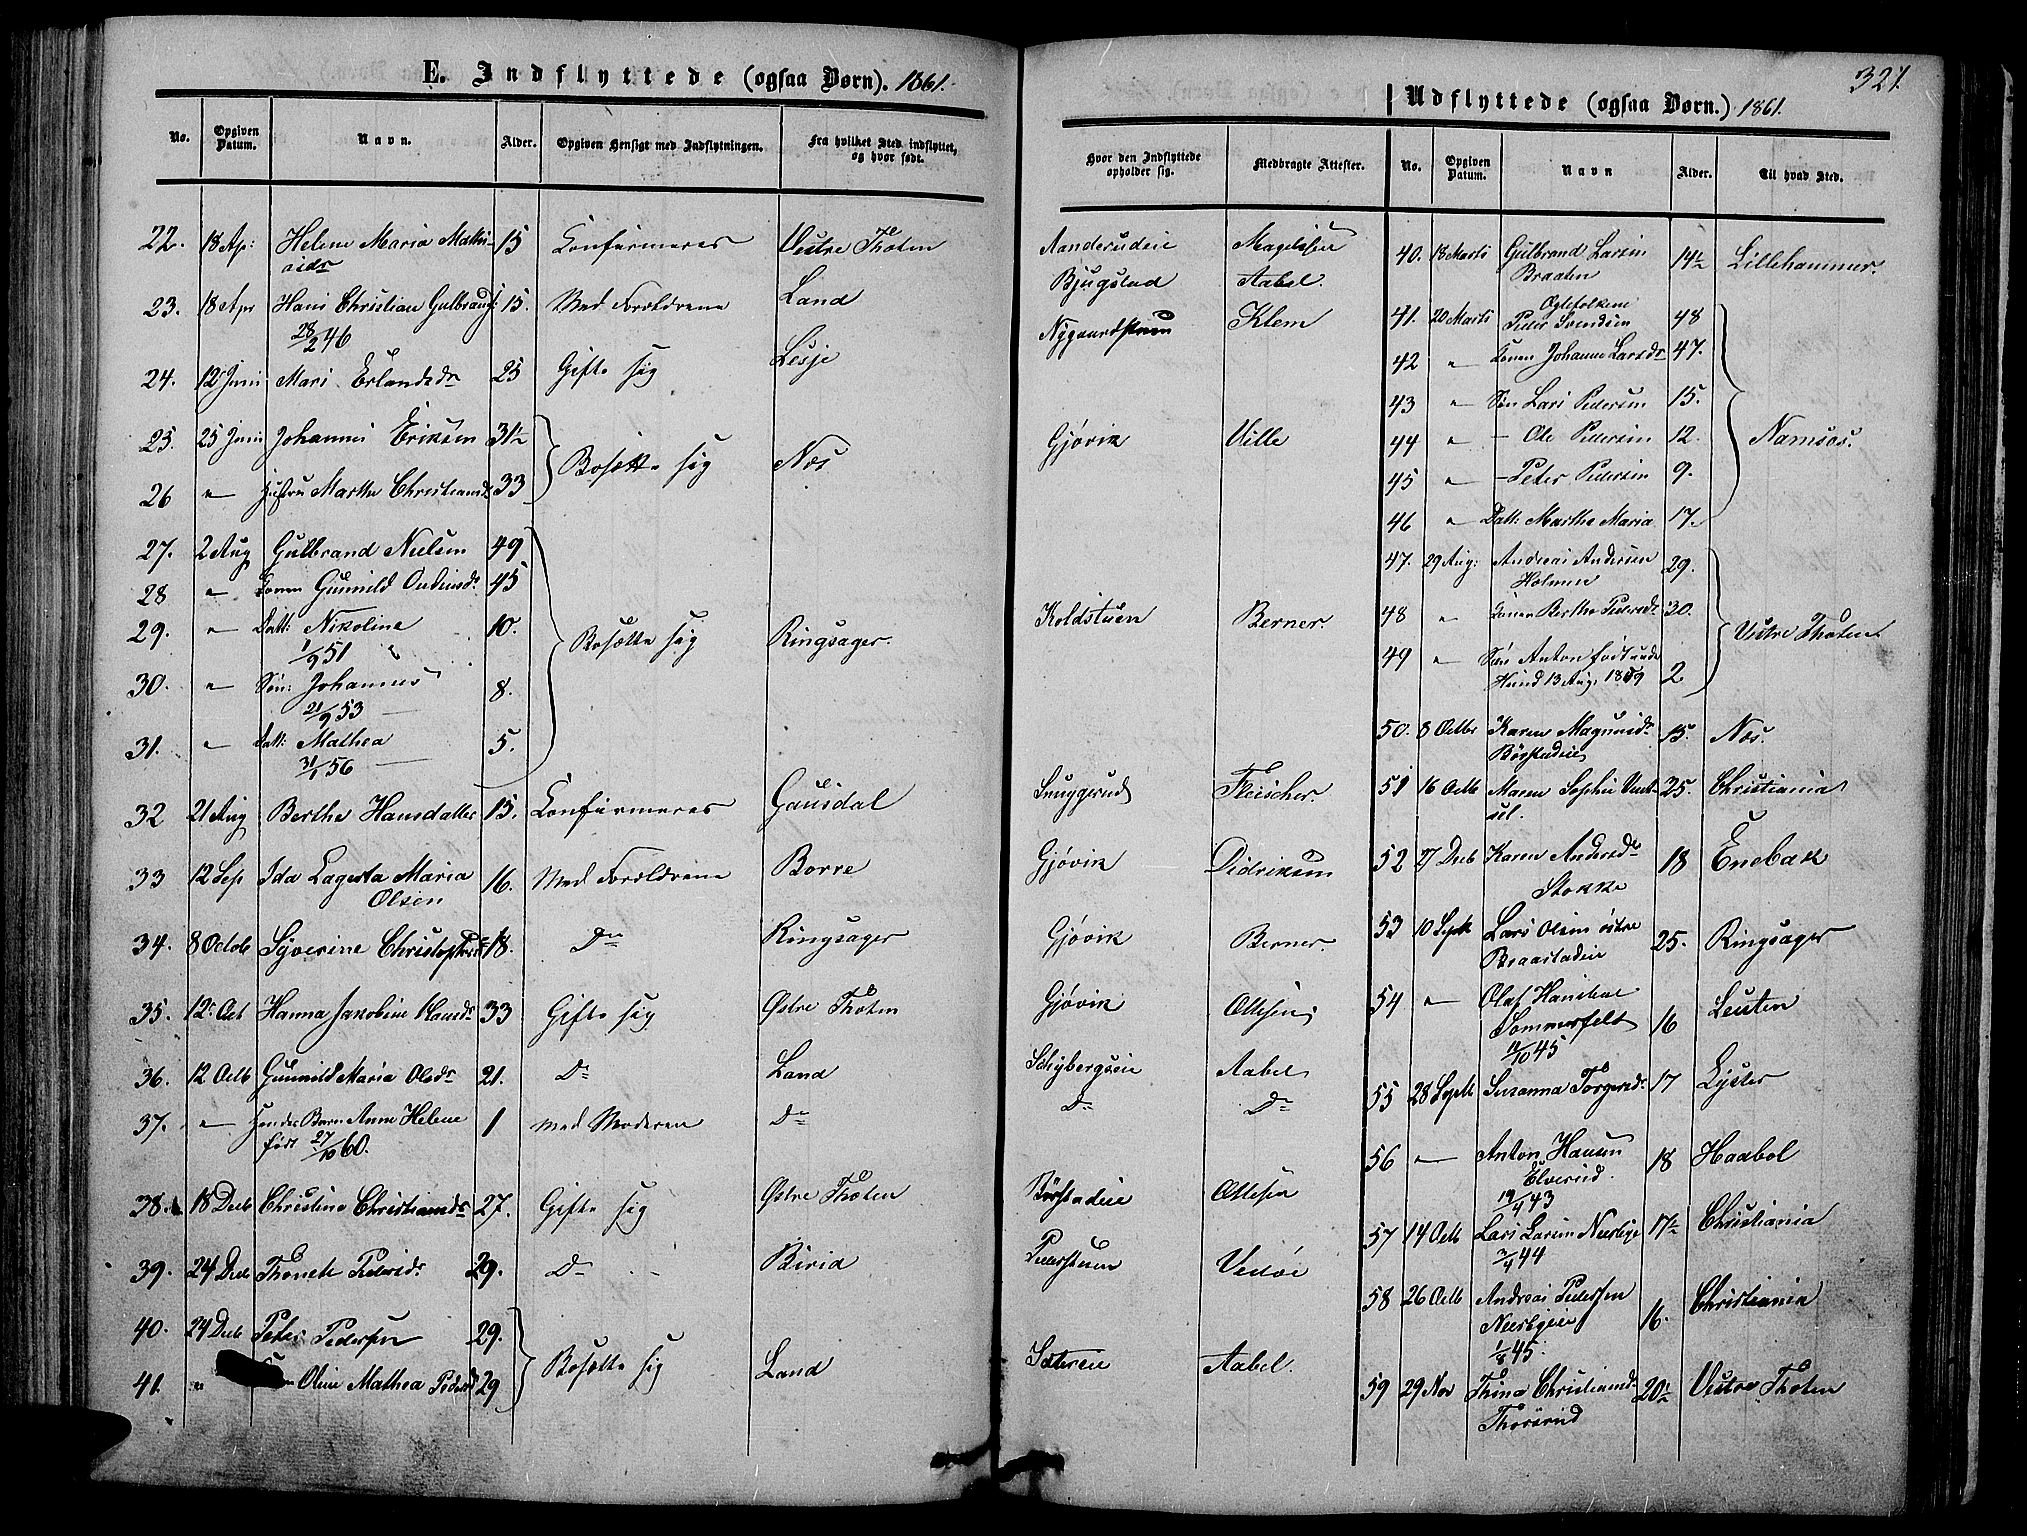 E. Indflyttede (ogsaa Børn). 1861.
No. Opgiven Datum. Navn. Alder. Opgiven Hensigt med Indflytningen. Fra hvilket Sted indflyttet, og hvor født.
22. 18 Ap: Helene Maria 15 Confirmeres Vestre Thoten
23. 18 Apr Hans Christian Gulbrands. 15. Med Forældrene Land
28/2 46
24. 12 Juni Mari Erlandsdr 25 Gifte sig Lesje
25. 25 Juni Johannes Eriksen 31½ Bosætte sig Næs
26 " Hustru Marthe Christiansd. 33
27. 2 Aug Gulbrand Nielsen 49 Bosætte sig Ringsager.
28 " Konen Gunnild 45
29. " Datt: Nikoline 10.
1/9 51
30. " Søn: Johannes 8.
21/9 53
31. " Datt: Mathea 5.
31/1 56
32 21 Aug Berthe Hansdatter 15. Confirmeres Gausdal
33 12 Sep Ida Lagerta Maria 16. Med Forældrene Borre
Olsen
34. 8 Octob Syverine Christophersd. 18. Do Ringsager
35. 12 Oct Hanna Jakobine Hansdr 33 Gifte sig Østre Thoten
36. 12 Octb Gunnild Maria Olsdr 21. Do Land
37. " Hendes Barn Anne Helene 1 med Moderen Do
født 27/10 60.
38. 18 Decb Christine Christiansdr 27. Gifte sig Østre Thoten
39. 24 Decb Thonete Pedersdr 29. Do Birid
40. 24 Decb Peter Pedersen 29. Bosætte sig Land
41. " Oline Mathea Pedersd 29
321.
Udflyttede (ogsaa Børn.) 1861.
Hvor den Indflyttede opholder sig. Medbragte Attester. No. Opgiven Datum. Navn Alder. Til hvad Sted.
Aanderudeie Magelssen
Bjugstad Aabel.
Nygaardstuen Klem
Gjøvik Wille
Koldstuen Berner.
Snuggerud Fleischer.
Gjøvik Didriksen
Gjøvik Berner
Gjøvik Ottesen
Aabel
Do Do
Børstadeie Ottesen
Pederstuen
Sætereie Aabel.
40. 18 Marts Gulbrand Larsen 14½ Lillehammer.
Braaten
41. 20 Marts Ægtefolkene
Peder Svendsen 48 Namsos.
42 " Konen Johanne Larsdr 47.
43 " Søn Lars Pedersen 15.
44 " - Ole Pedersen 12.
45 " - Peter Pedersen 9.
46 " Datt: Marthe Maria 17.
47. 29 Aug: Andreas Andersen 29. Vestre Thoten
Holmen
48 " Konen Berthe Pedersdr 30.
49 " Søn Anton født
13 Aug. 1859 2
50. 8 Octbr Karen Magnusdr 15. Næs.
Børstadeie
51 16 Octb Maren Sophie 25. Christiania
52 27 Decb Karen Andersdr 18 Enebak
Stokke
53 10 Septb Lars Olsen østre 25. Ringsager
Braastadeie
54 " Olaf Hanibal 16 Leuten
Sommerfelt
11/10 45
55 28 Septb Susanna Torgersdr 17 Lyster
56 " Anton Hansen 18 Haabøl
Elverud.
19/4 43
57 14 Octb Lars Larsen 17½ Christiania
3/4 44
58 26 Octb Andreas Pedersen 16. Christiania
1/8 45.
59 29 Nov Thina Christiansd. 20½ Vestre Thoten
Thorsrud